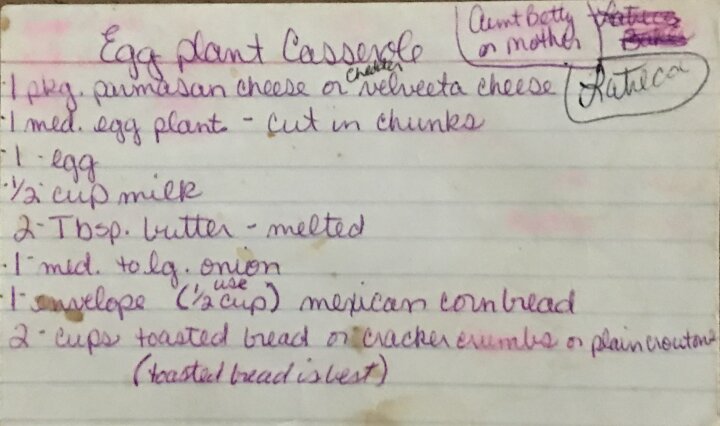 Egg plant Casserole
Aunt Betty
or mother
Laticia
1 pkg. parmasan cheese or cheddar velveeta cheese
1 med. egg plant - cut in chunks
1 - egg
1/2 cup milk
2 - Tbsp. butter - melted
1 - med. to lg. onion
1 - envelope (use 1/2 cup) mexican cornbread
2 - cups toasted bread or cracker crumbs or plain croutons
(toasted bread is best)